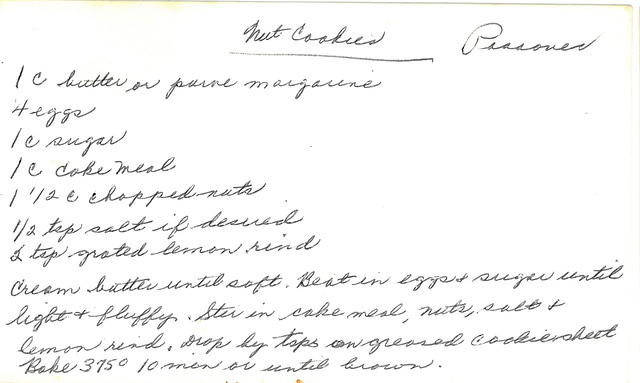 Nut Cookies Passover
1 C butter or parve margarine
4 eggs
1 C sugar
1 C cake meal
1 1/2 C chopped nuts
1/2 tsp salt if desired
2 tsp grated lemon rind
Cream butter until soft. Beat in eggs & sugar until
light & fluffy. Stir in cake meal, nuts, salt &
lemon rind. Drop by tsps on greased cookie sheet
Bake 375° 10 min or until brown.